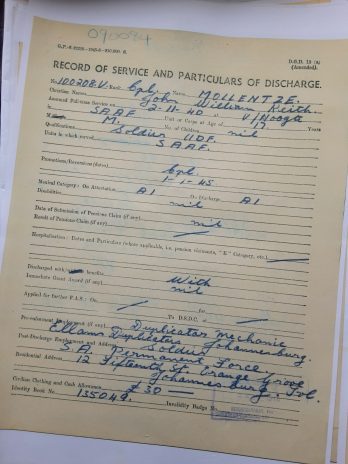 090084
G.P.-S.
D.S.D. 13
(Amended).
RECORD OF SERVICE AND PARTICULARS OF DISCHARGE.
No. 100208V Rank Cpl. Name MOLLENTZE.
Christian Names John William Keith.
Assumed Full-time Service on 2-11-40 at V/Hoogte
Unit or Corps SAAF at Age of 17 Years
M. No. of Children nil
Qualifications Soldier UDF.
Units in which served S.A.A.F.
Promotions/Reversions (dates) Cpl.
1-1-45
Medical Category: On Attestation A1 On Discharge A1
Disabilities nil
Date of Submission of Pensions Claim (if any) nil
Result of Pensions Claim (if any)
Hospitalisation: Dates and Particulars (where applicable, i.e. pension claimants, "E" Category, etc.)
Discharged with benefits. With
Immediate Grant Award (if any) nil
Applied for further F.A.B.: On / To D.S.D.C. /
Pre-enlistment Employment (if any) Duplicator Mechanic
Ellams Duplicators, Johannesburg.
Post-Discharge Employment and Address Soldier
S.A. Permanent Force,
Residential Address 12 Fifteenth St. Orange Grove
Johannesburg. Tvl.
Civilian Clothing and Cash Allowance £30
Identity Book No. 135049. Invalidity Badge No.